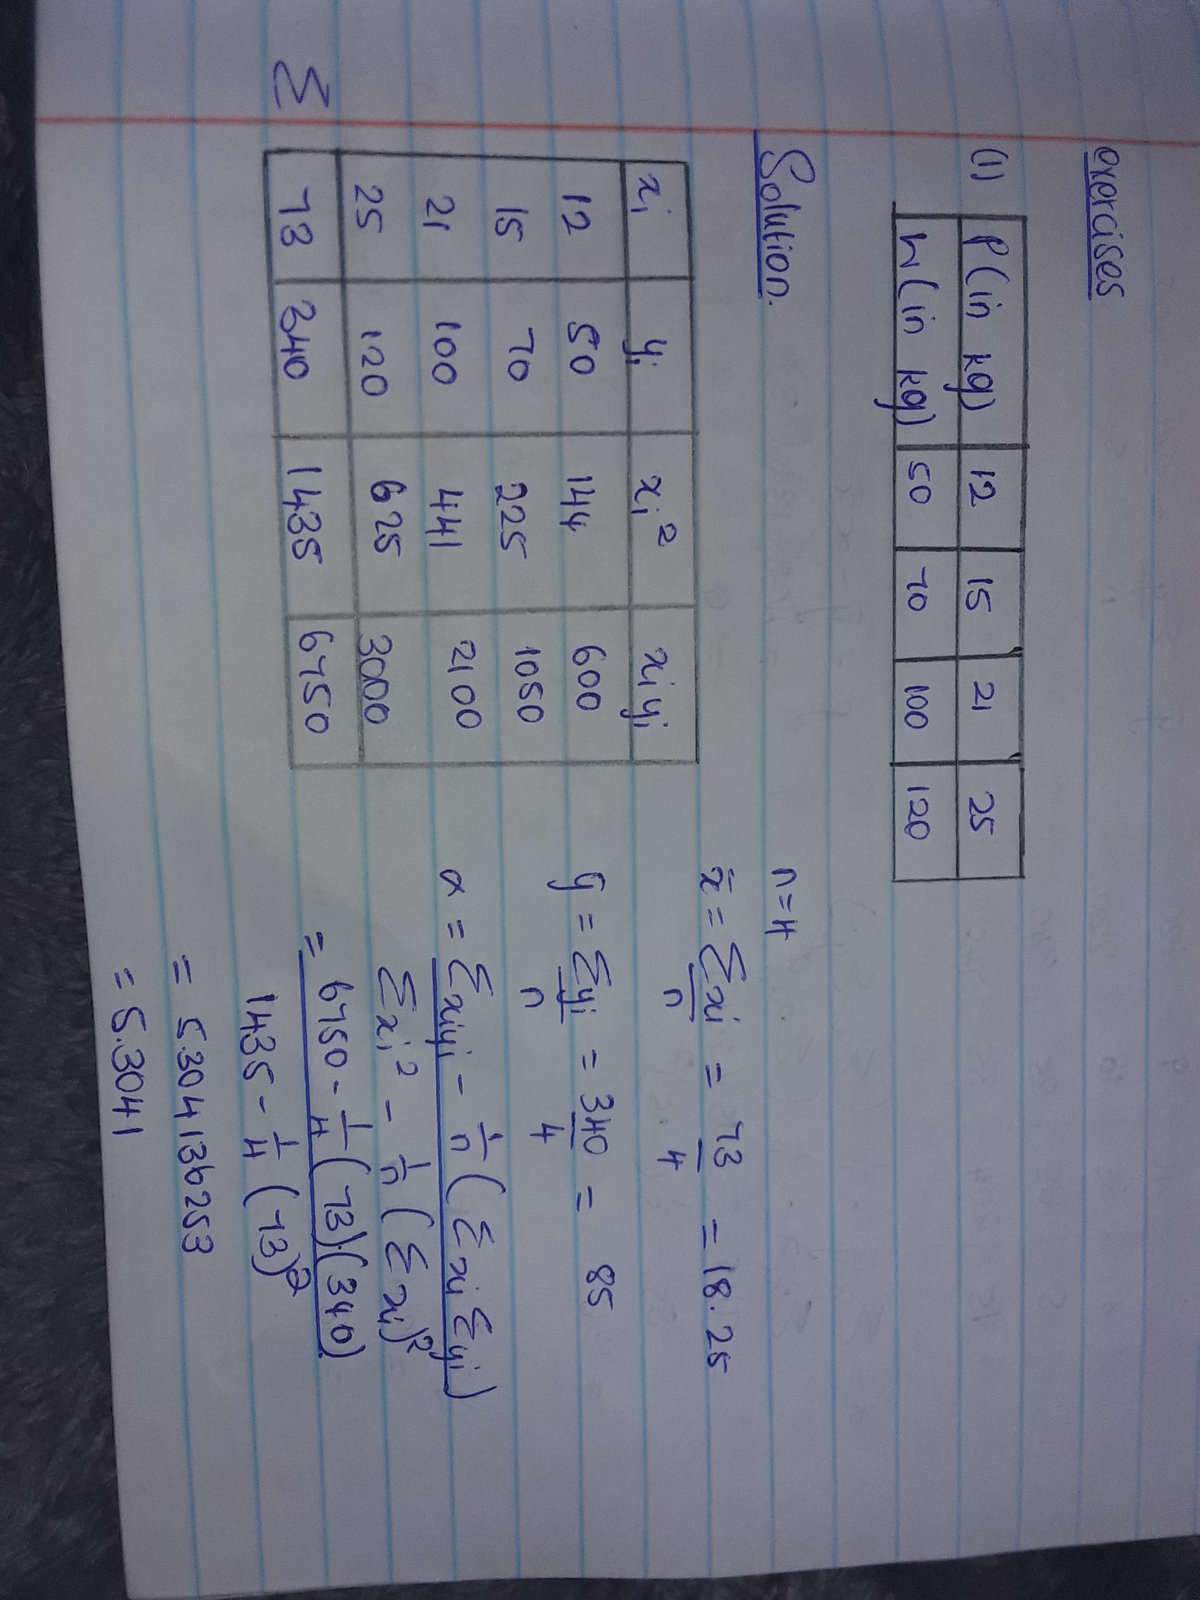 exercises
(1) P(in kg) 12 15 21 25
W(in kg) 50 70 100 120
Solution.
xᵢ yᵢ xᵢ² xᵢyᵢ
12 50 144 600
15 70 225 1050
21 100 441 2100
25 120 625 3000
Σ 73 340 1435 6750
n=4
x̄ = Σxᵢ/n = 73/4 = 18.25
ȳ = Σyᵢ/n = 340/4 = 85
α = Σxᵢyᵢ - 1/n (Σxᵢ Σyᵢ)
Σxᵢ² - 1/n (Σxᵢ)²
= 6750 - 1/4 (73)(340)
1435 - 1/4 (73)²
= 5.304136253
= 5.3041